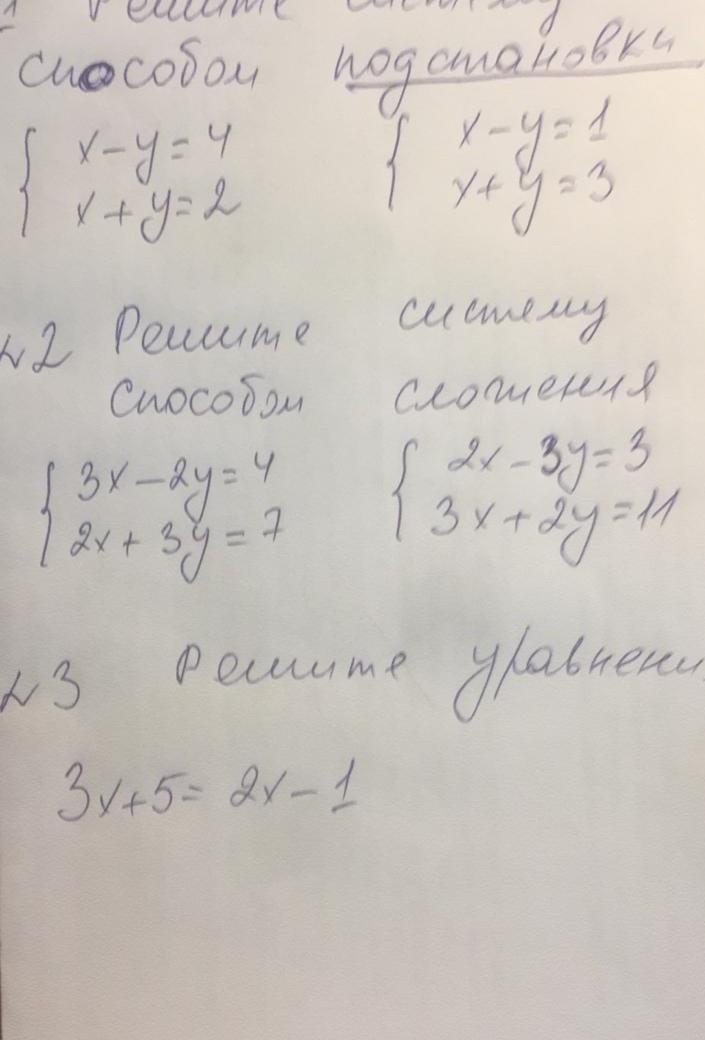 1 Решите систему
способом подстановки
{ x - y = 4 { x - y = 1
x + y = 2 x + y = 3
№2 Решите систему
способом сложения
{ 3x - 2y = 4 { 2x - 3y = 3
2x + 3y = 7 3x + 2y = 11
№3 Решите уравнени
3x + 5 = 2x - 1